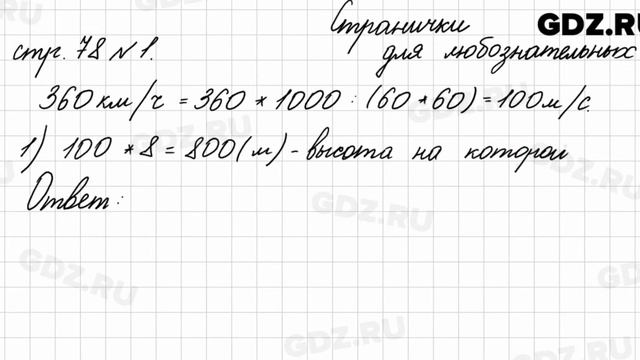 Странички GDZ.RU
стр. 78 №1. для любознательных
360 км/ч = 360 * 1000 : (60 * 60) = 100 м/с.
1) 100 * 8 = 800 (м) - высота на которой
Ответ:
GDZ.RU
GDZ.RU
GDZ.RU
GDZ.RU
GDZ.RU
GDZ.RU